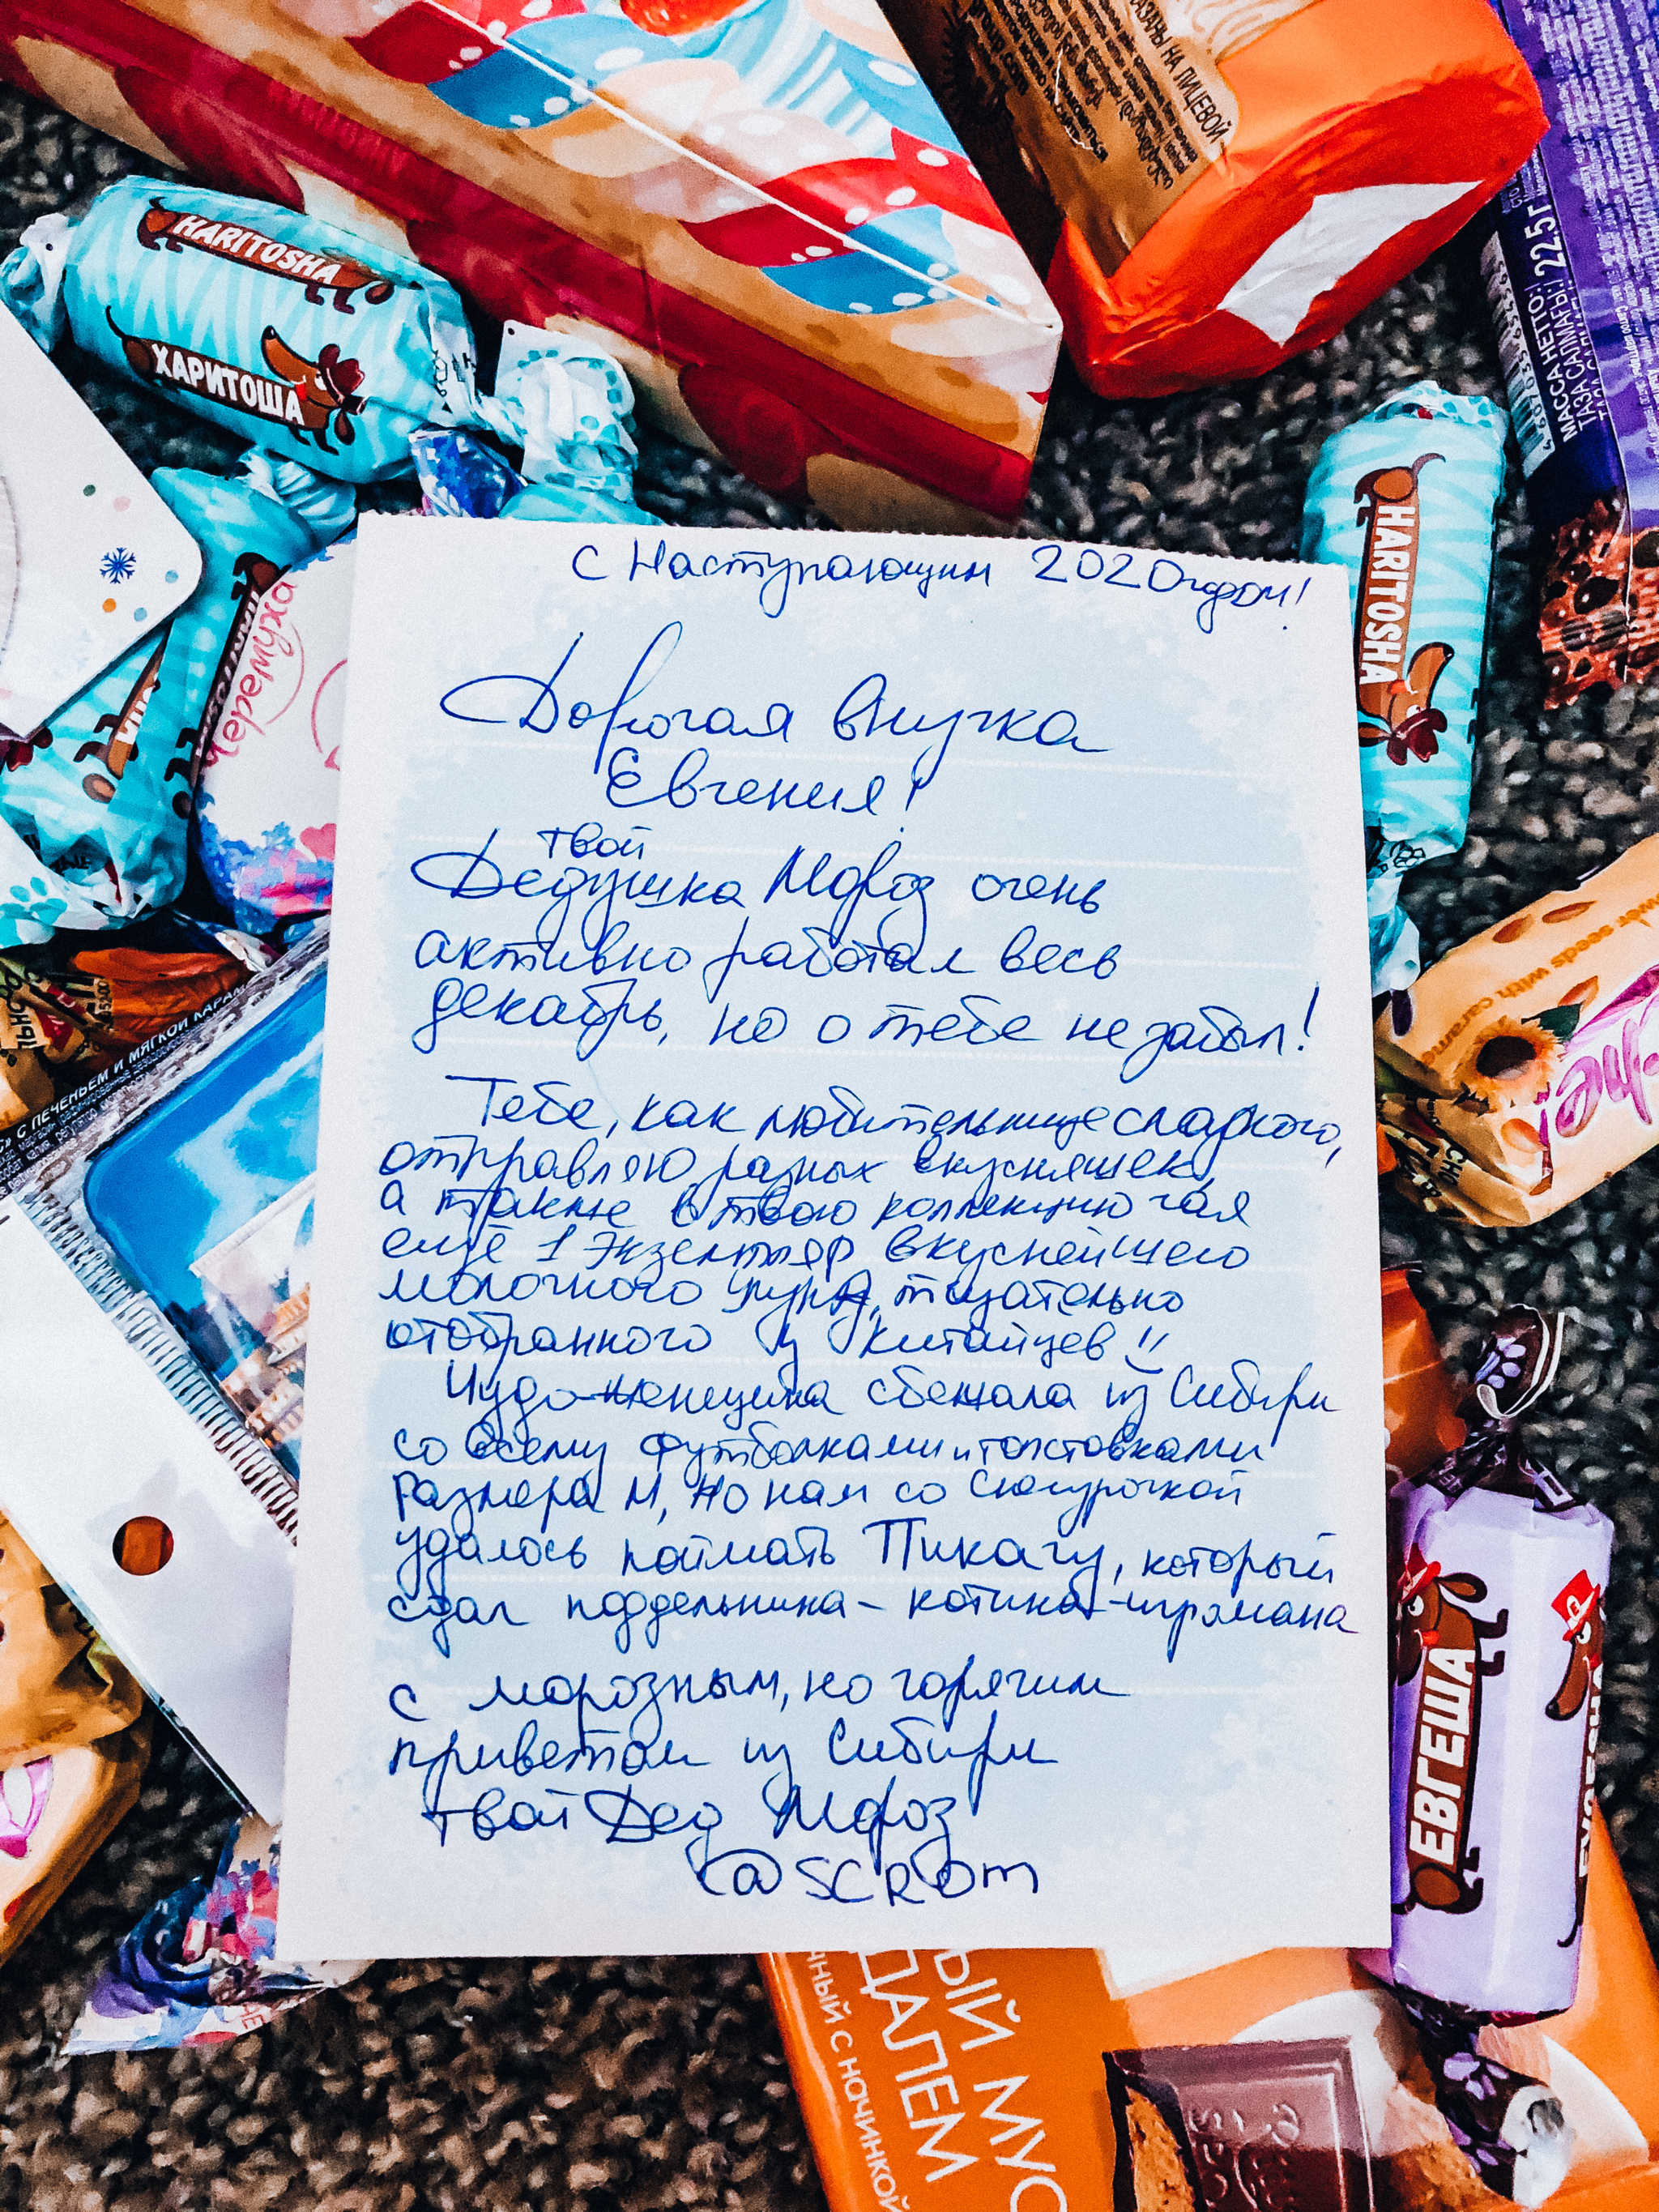 МАССА НЕТТО: 22.5г
HARITOSHA
ХАРИТОША
HARITOSHA
С Наступающим 2020 годом!
Дорогая внучка
Евгения!
твой
Дедушка Мороз очень
активно работал весь
декабрь, но о тебе не забыл!
Тебе, как любительнице сладкого,
отправляю разных вкусняшек,
а также в твою коллекцию чая
ещё 1 экземпляр вкуснейшего
молочного улуна, тщательно
отобранного у китайцев!!
Чудо-женщина сбежала из Сибири
со всему футболками и толстовками
размера М, но нам со Снегурочкой
удалось поймать Пикачу, который
сдал подельника - котика-игромана
с морозным, но горячим
приветом из Сибири
твой Дед Мороз
@SCROM
С ПЕЧЕНЬЕМ И МЯГКОЙ КАРАМ
seeds with caramel
ЕВГЕША
ЫЙ МУС
ДАЛЕМ
ЧНЫЙ С НАЧИНКОЙ